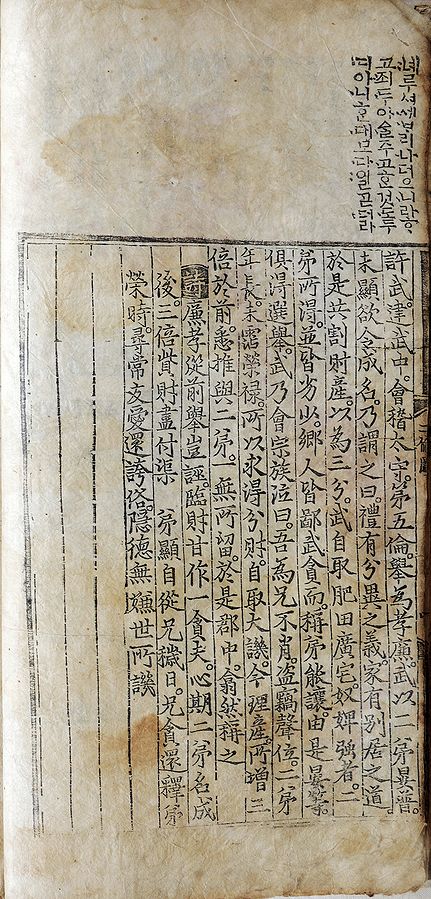 녜루셔세ᄇᆞ리나더으니라ᄒᆞ
고죄두아ᅀᆞ주고ᄒᆞᆫ것도두
디아니ᄒᆞᆫ대모다일ᄏᆞᆮ더라
許武建武中。會稽太守。第五倫。舉為孝廉。武以二弟晏普。
未顯欲令成名。乃謂之曰。禮有分異之義。家有別居之道。
於是共割財產。以為三分。武自取肥田廣宅奴婢强者。二
弟所得並皆劣少。鄉人皆鄙武貪而。稱弟能讓。由是晏等。
俱得選舉。武乃會宗族泣曰。吾為兄不肖。盜竊聲位。二弟
年長。未霑榮祿。所以求得分財。自取大譏。今理產所增三
倍於前。悉推與二弟。一無所留。於是郡中。翕然稱之
詩 廉孝從前舉豈誣。臨財甘作一貪夫。心期二弟名成
後。三倍貲財盡付渠 弟顯自從兄穢日。兄貪還釋弟
榮時。尋常友愛還誇俗隱德無嫌世所譏